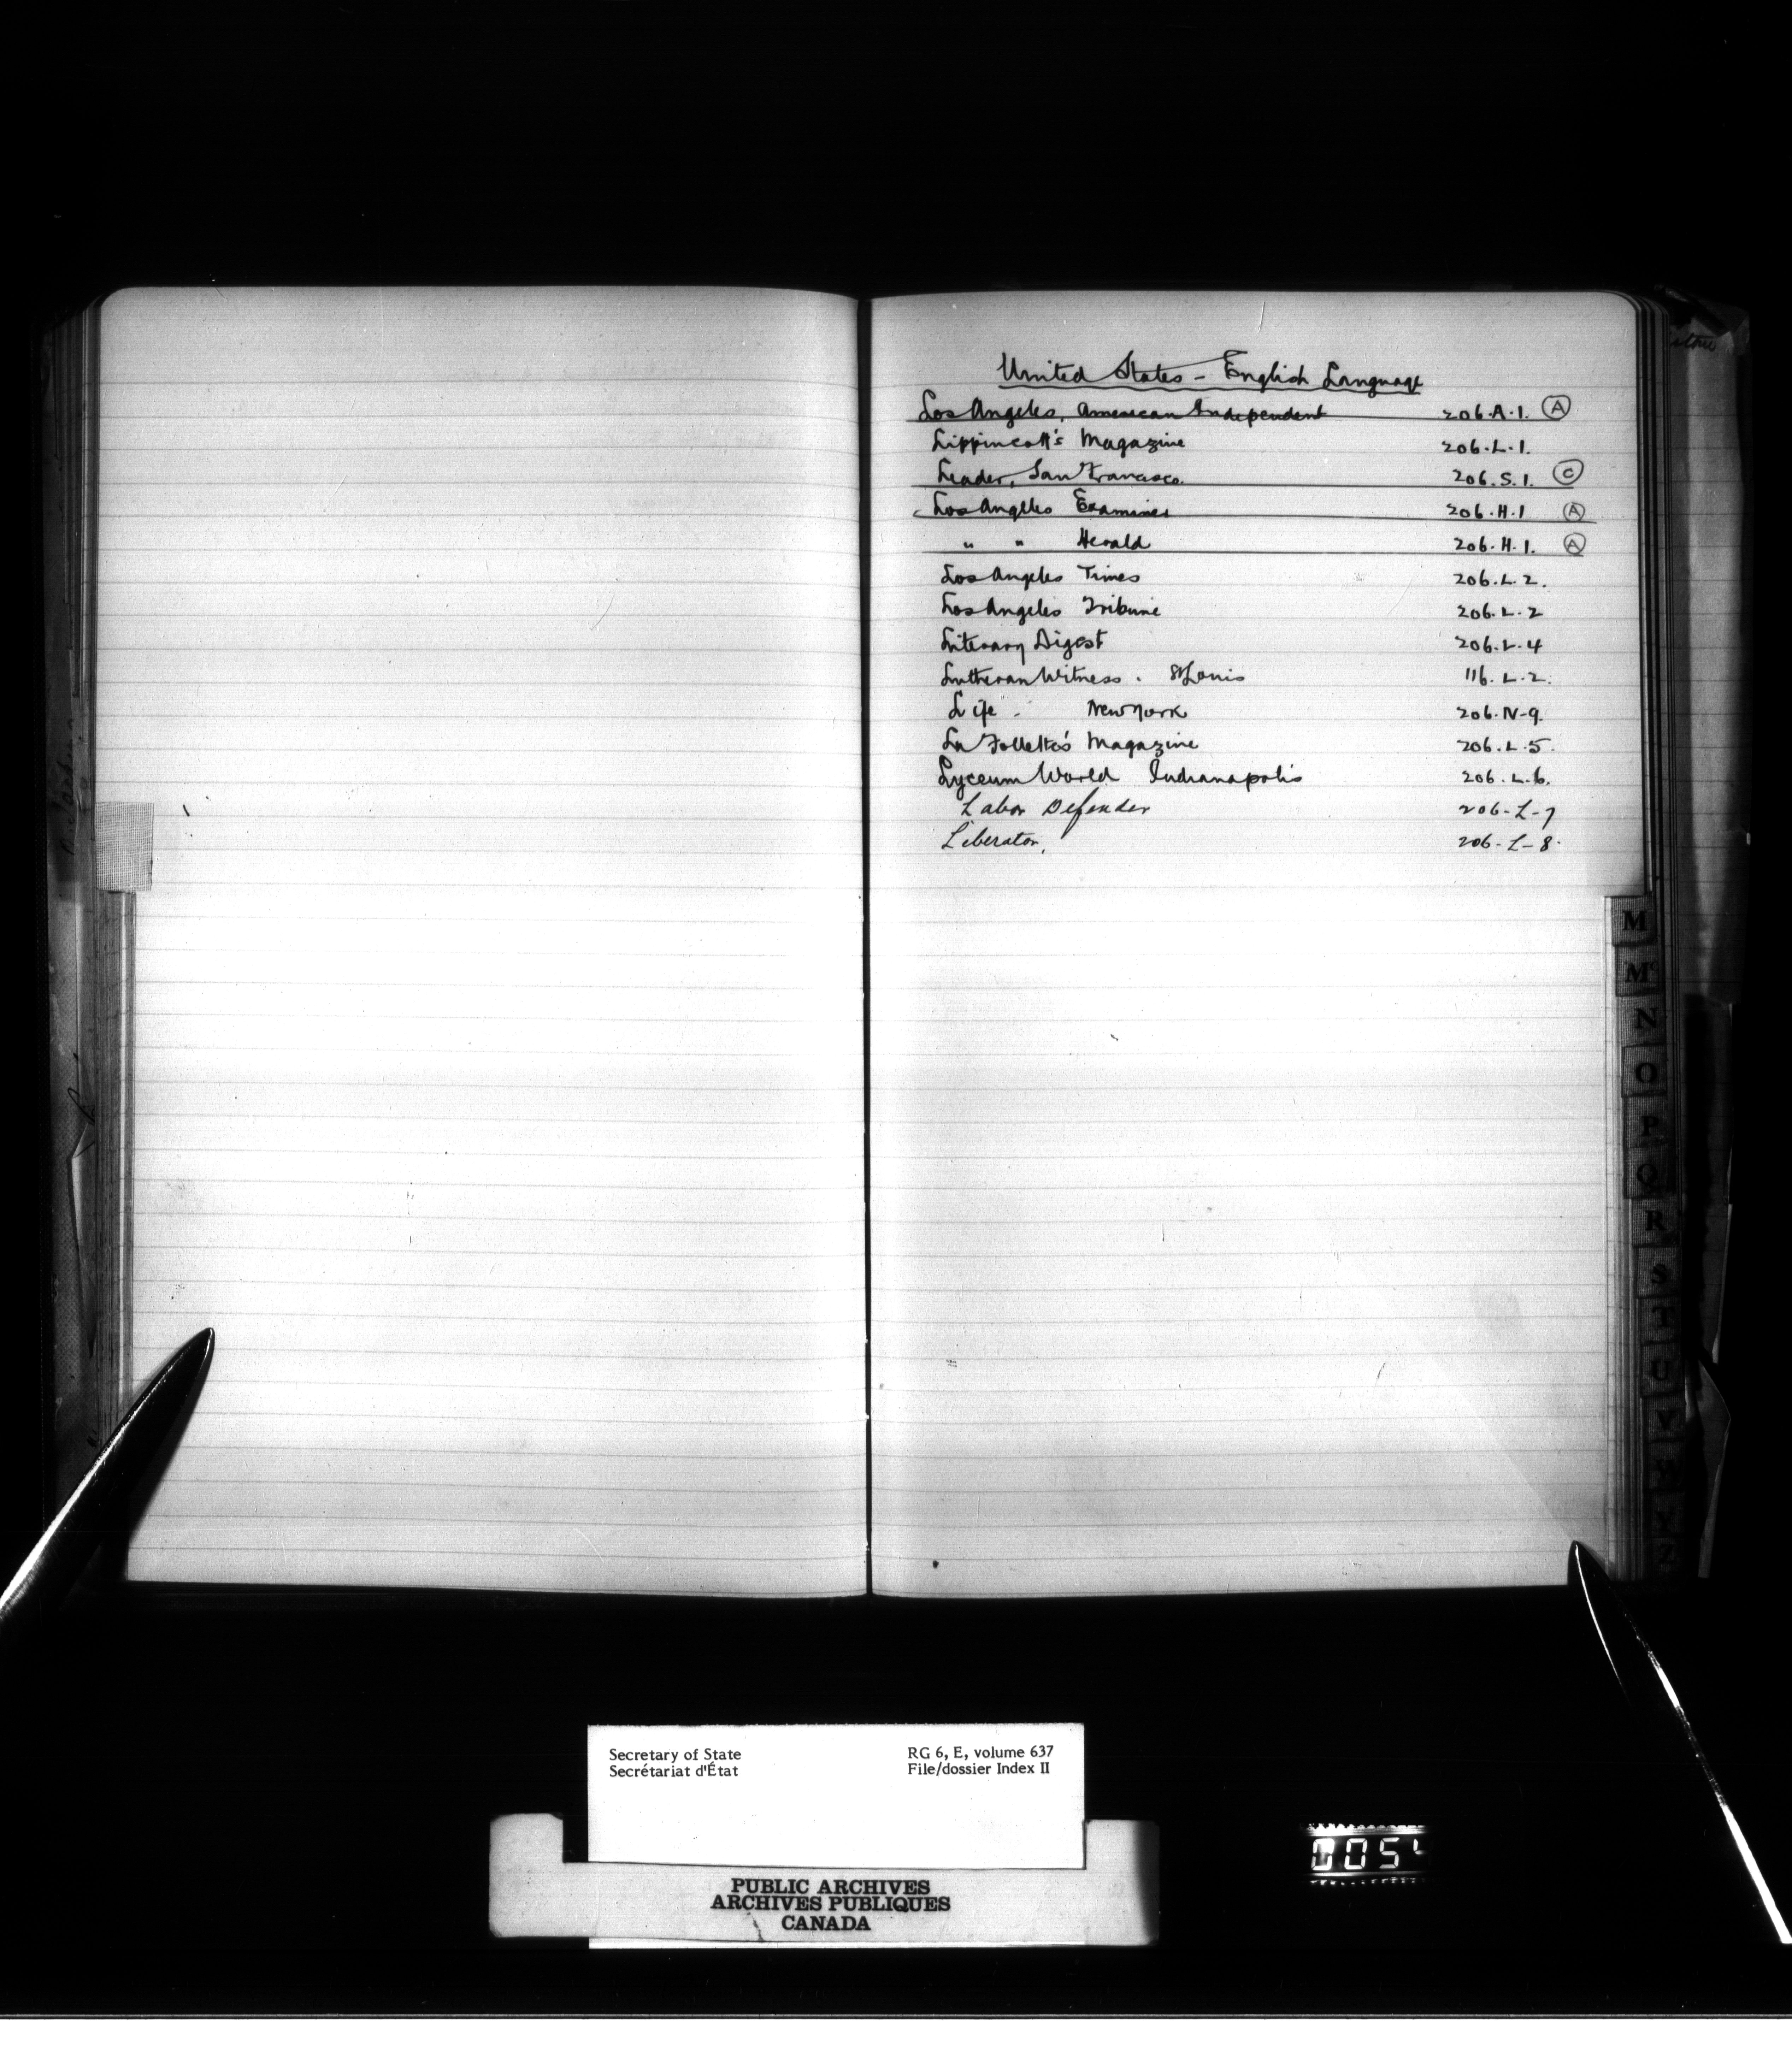 United States - English Language
Los Angeles, American Independent 206.A.1. A
Lippincott's Magazine 206.L.1.
Leader, San Francisco. 206.S.1. C
Los Angeles Examiner 206.H.1 A
" " Herald 206.H.1. A
Los Angeles Times 206.L.2.
Los Angeles Tribune 206.L.2
Literary Digest 206.L.4
Lutheran Witness. St Louis 116.L.2.
Life - New York 206.N-9.
La Follette's Magazine 206.L.5.
Lyceum World Indianapolis 206.L.6.
Labor Defender 206-L-7
Liberator, 206-L-8.
M
Mc
N
O
P
Q
R
S
T
U
V
W
Y
Z
Secretary of State RG 6, E, volume 637
Secrétariat d'État File/dossier Index II
PUBLIC ARCHIVES
ARCHIVES PUBLIQUES
CANADA
0054